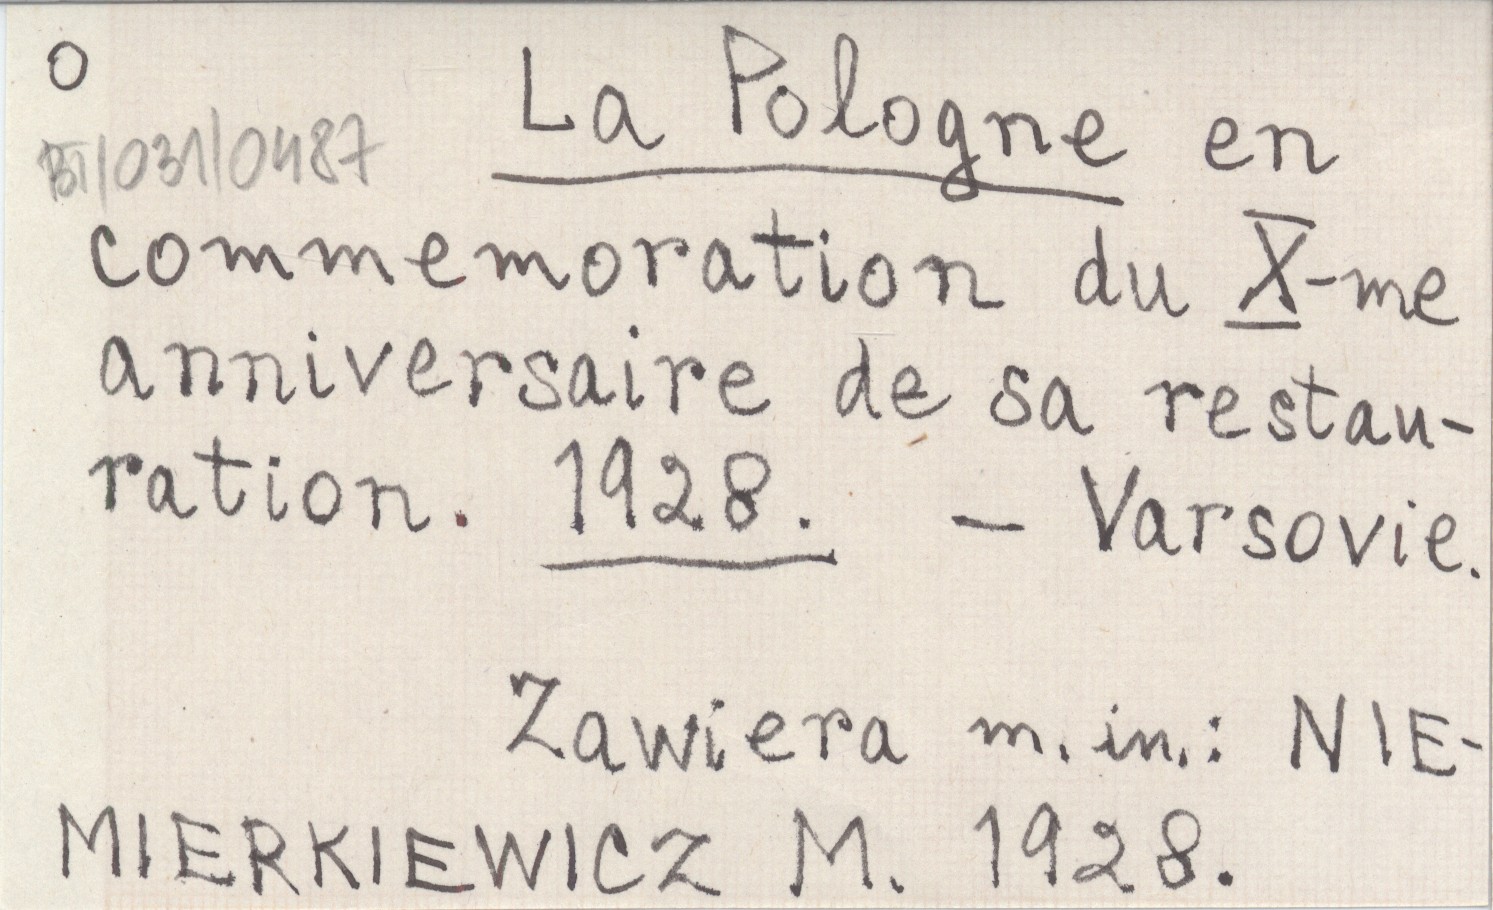 O
La Pologne en
BI/031/0487
commemoration du X-me
anniversaire de sa restau-
ration. 1928. - Varsovie.
Zawiera m. in.: NIE-
MIERKIEWICZ M. 1928.